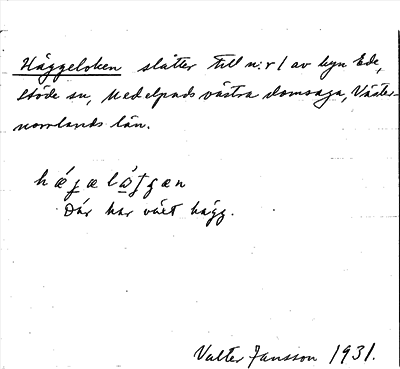 Häggeloken slåtter till n:r 1 av byn Ede,
Stöde sn, Medelpads västra domsaga, Väster-
norrlands län.
Där har växt hägg.
Valter Jansson 1931.